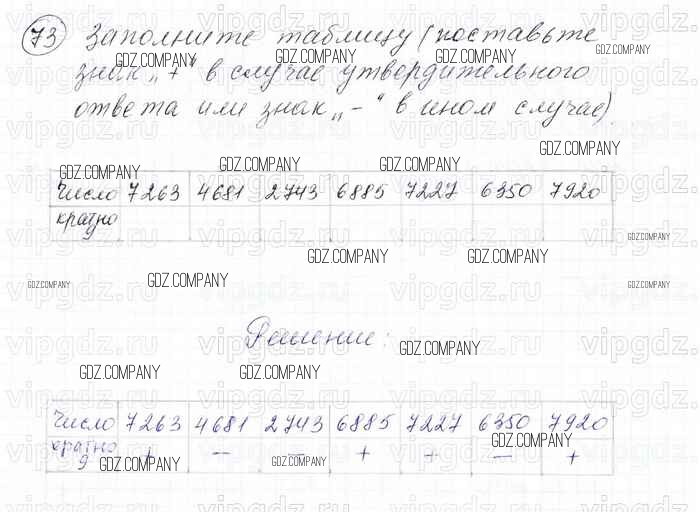 73 Заполните таблицу (поставьте
знак „+" в случае утвердительного
ответа или знак „-" в ином случае)
Число 7263 4681 2743 6885 7227 6350 7920
кратно
9
Решение:
Число 7263 4681 2743 6885 7227 6350 7920
кратно
9 + - - + + - +
GDZ.COMPANY
vipgdz.ru